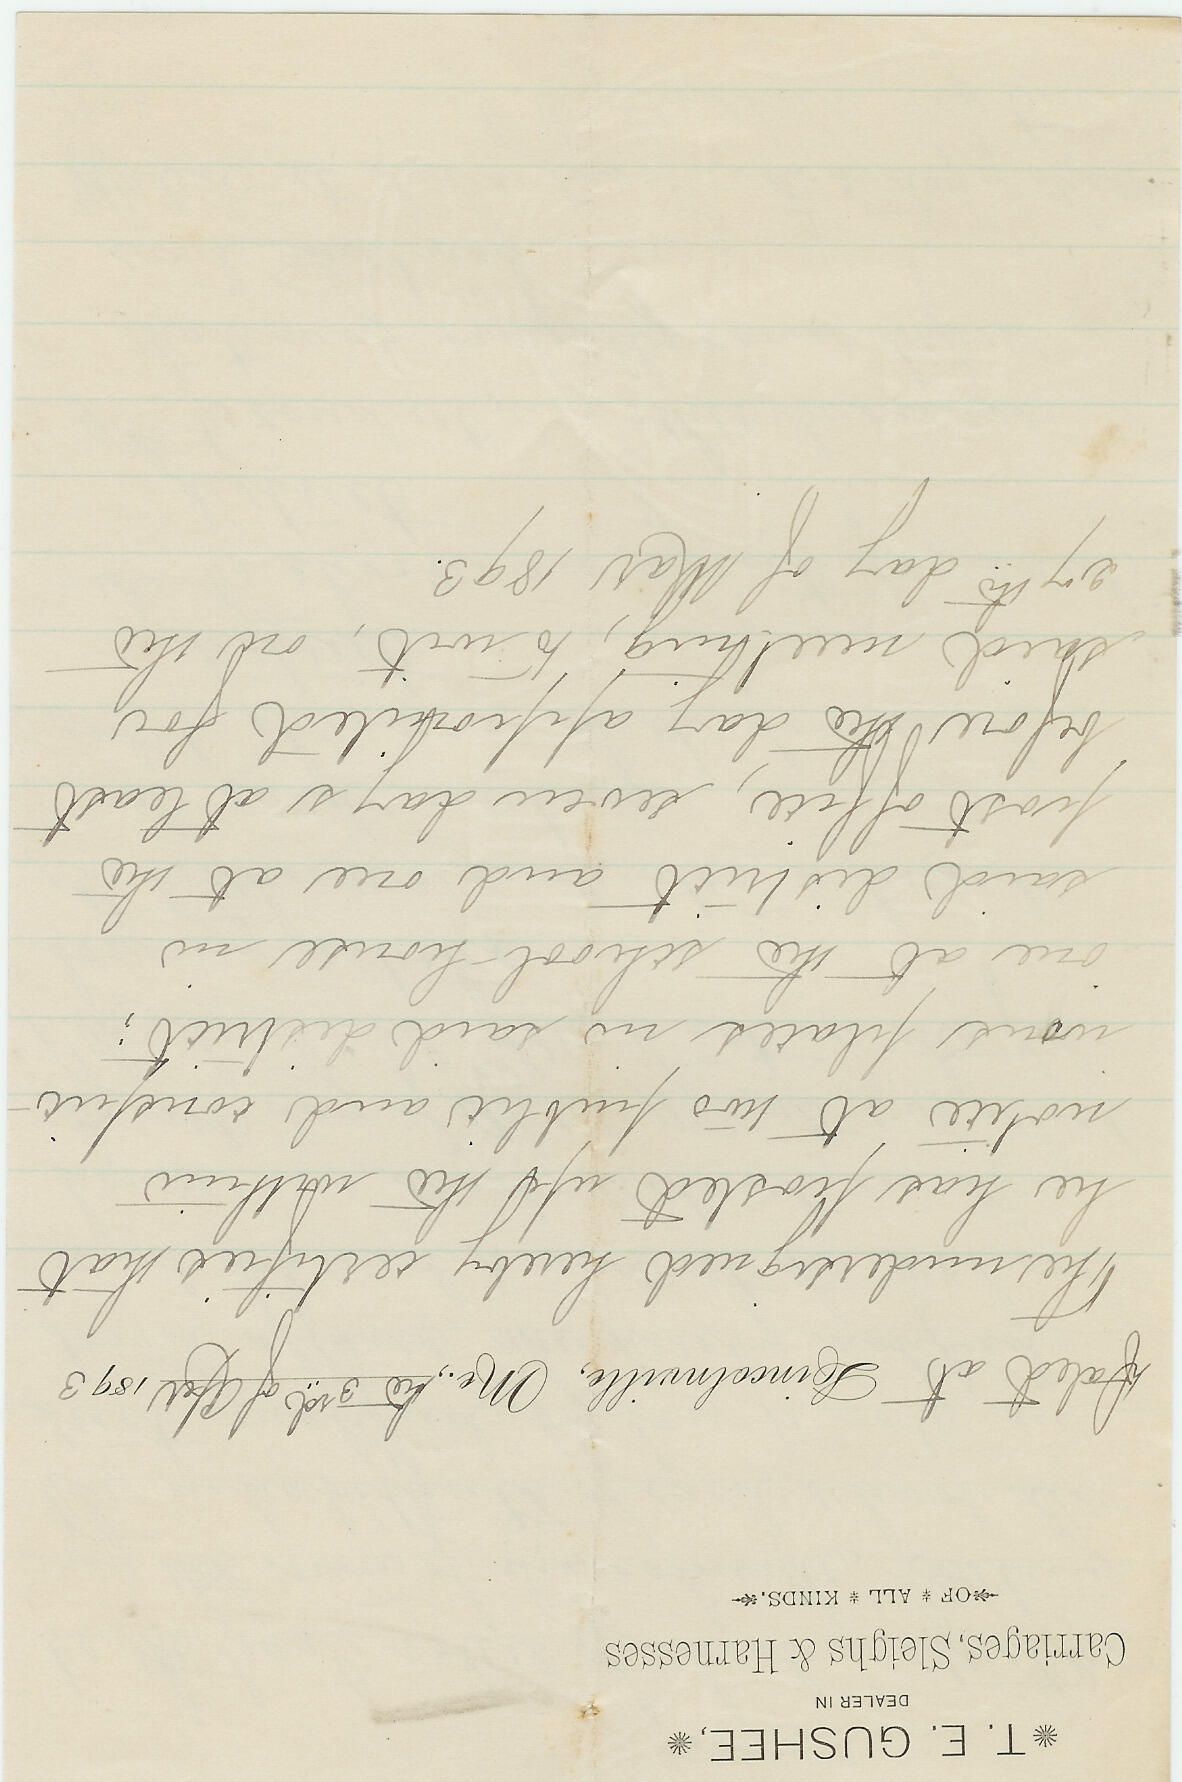 T. E. GUSHEE,
DEALER IN
Carriages, Sleighs & Harnesses
OF * ALL * KINDS.
Dated at Lincolnville, Me., the 3rd of Apl 1893
The undersigned hereby certifies that
he has posted up the within
notice at two public and conspic-
uous places in said district;
one at the school-house in
said district and one at the
post office, seven days at least
before the day appointed for
said meeting, to wit, on the
27th day of Mar 1893.